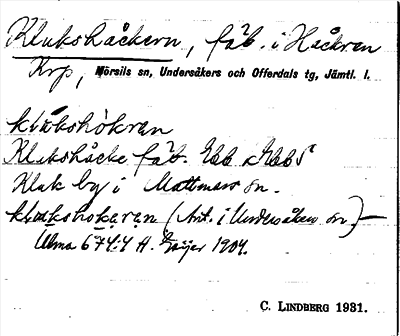 Klukshåkern, fäb. i Håckren
Krp, Mörsils sn, Undersåkers och Offerdals tg, Jämtl. l.
klukshokran
Klukshåcke fäb. Ebb
Kluk by i Mattmars sn.
klukshokaran (Ant. i Undersåkers sn.)—
Ulma 674:4 H. Geijer 1904.
C. LINDBERG 1931.